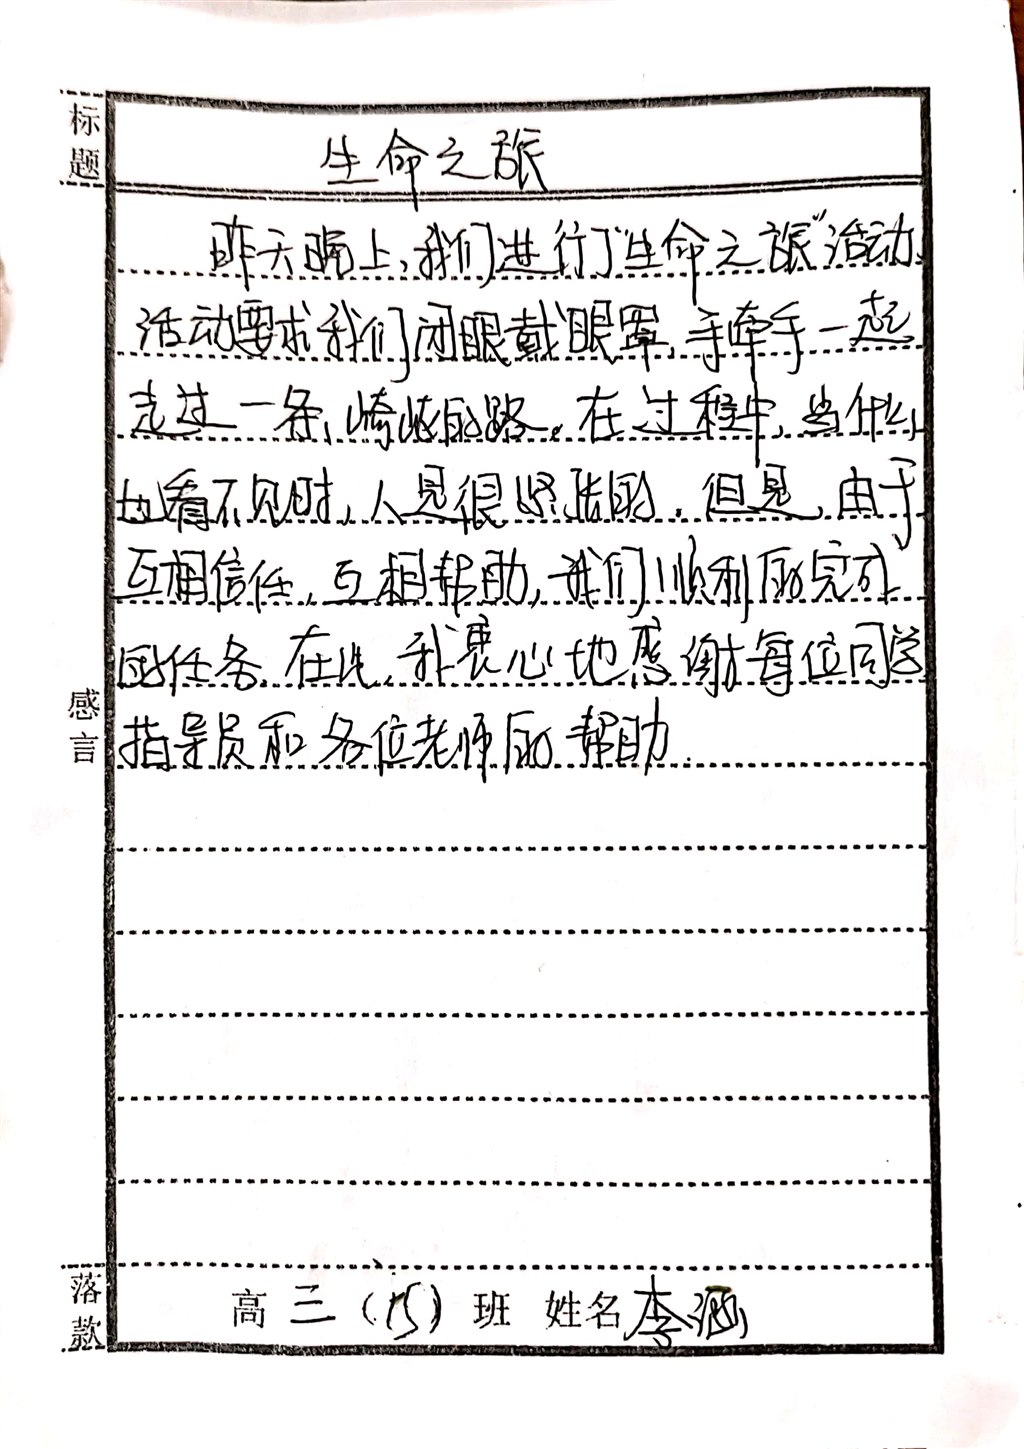 标题
生命之旅
昨天晚上,我们进行了“生命之旅”活动,
活动要求我们闭眼戴眼罩,手牵手一起
走过一条崎岖的路。在过程中,当什么
也看不见时,人是很紧张的.但是,由于
互相信任,互相帮助,我们顺利的完成
的任务.在此,我衷心地感谢每位同学
感言
指导员和各位老师的帮助.
落款
高三(15)班 姓名李涵